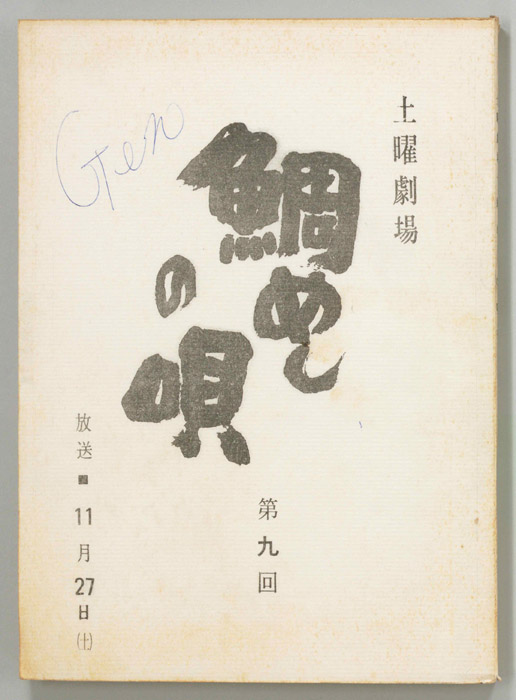 土曜劇場
鯛めし
の唄
第九回
放送■11月27日(土)
Gen